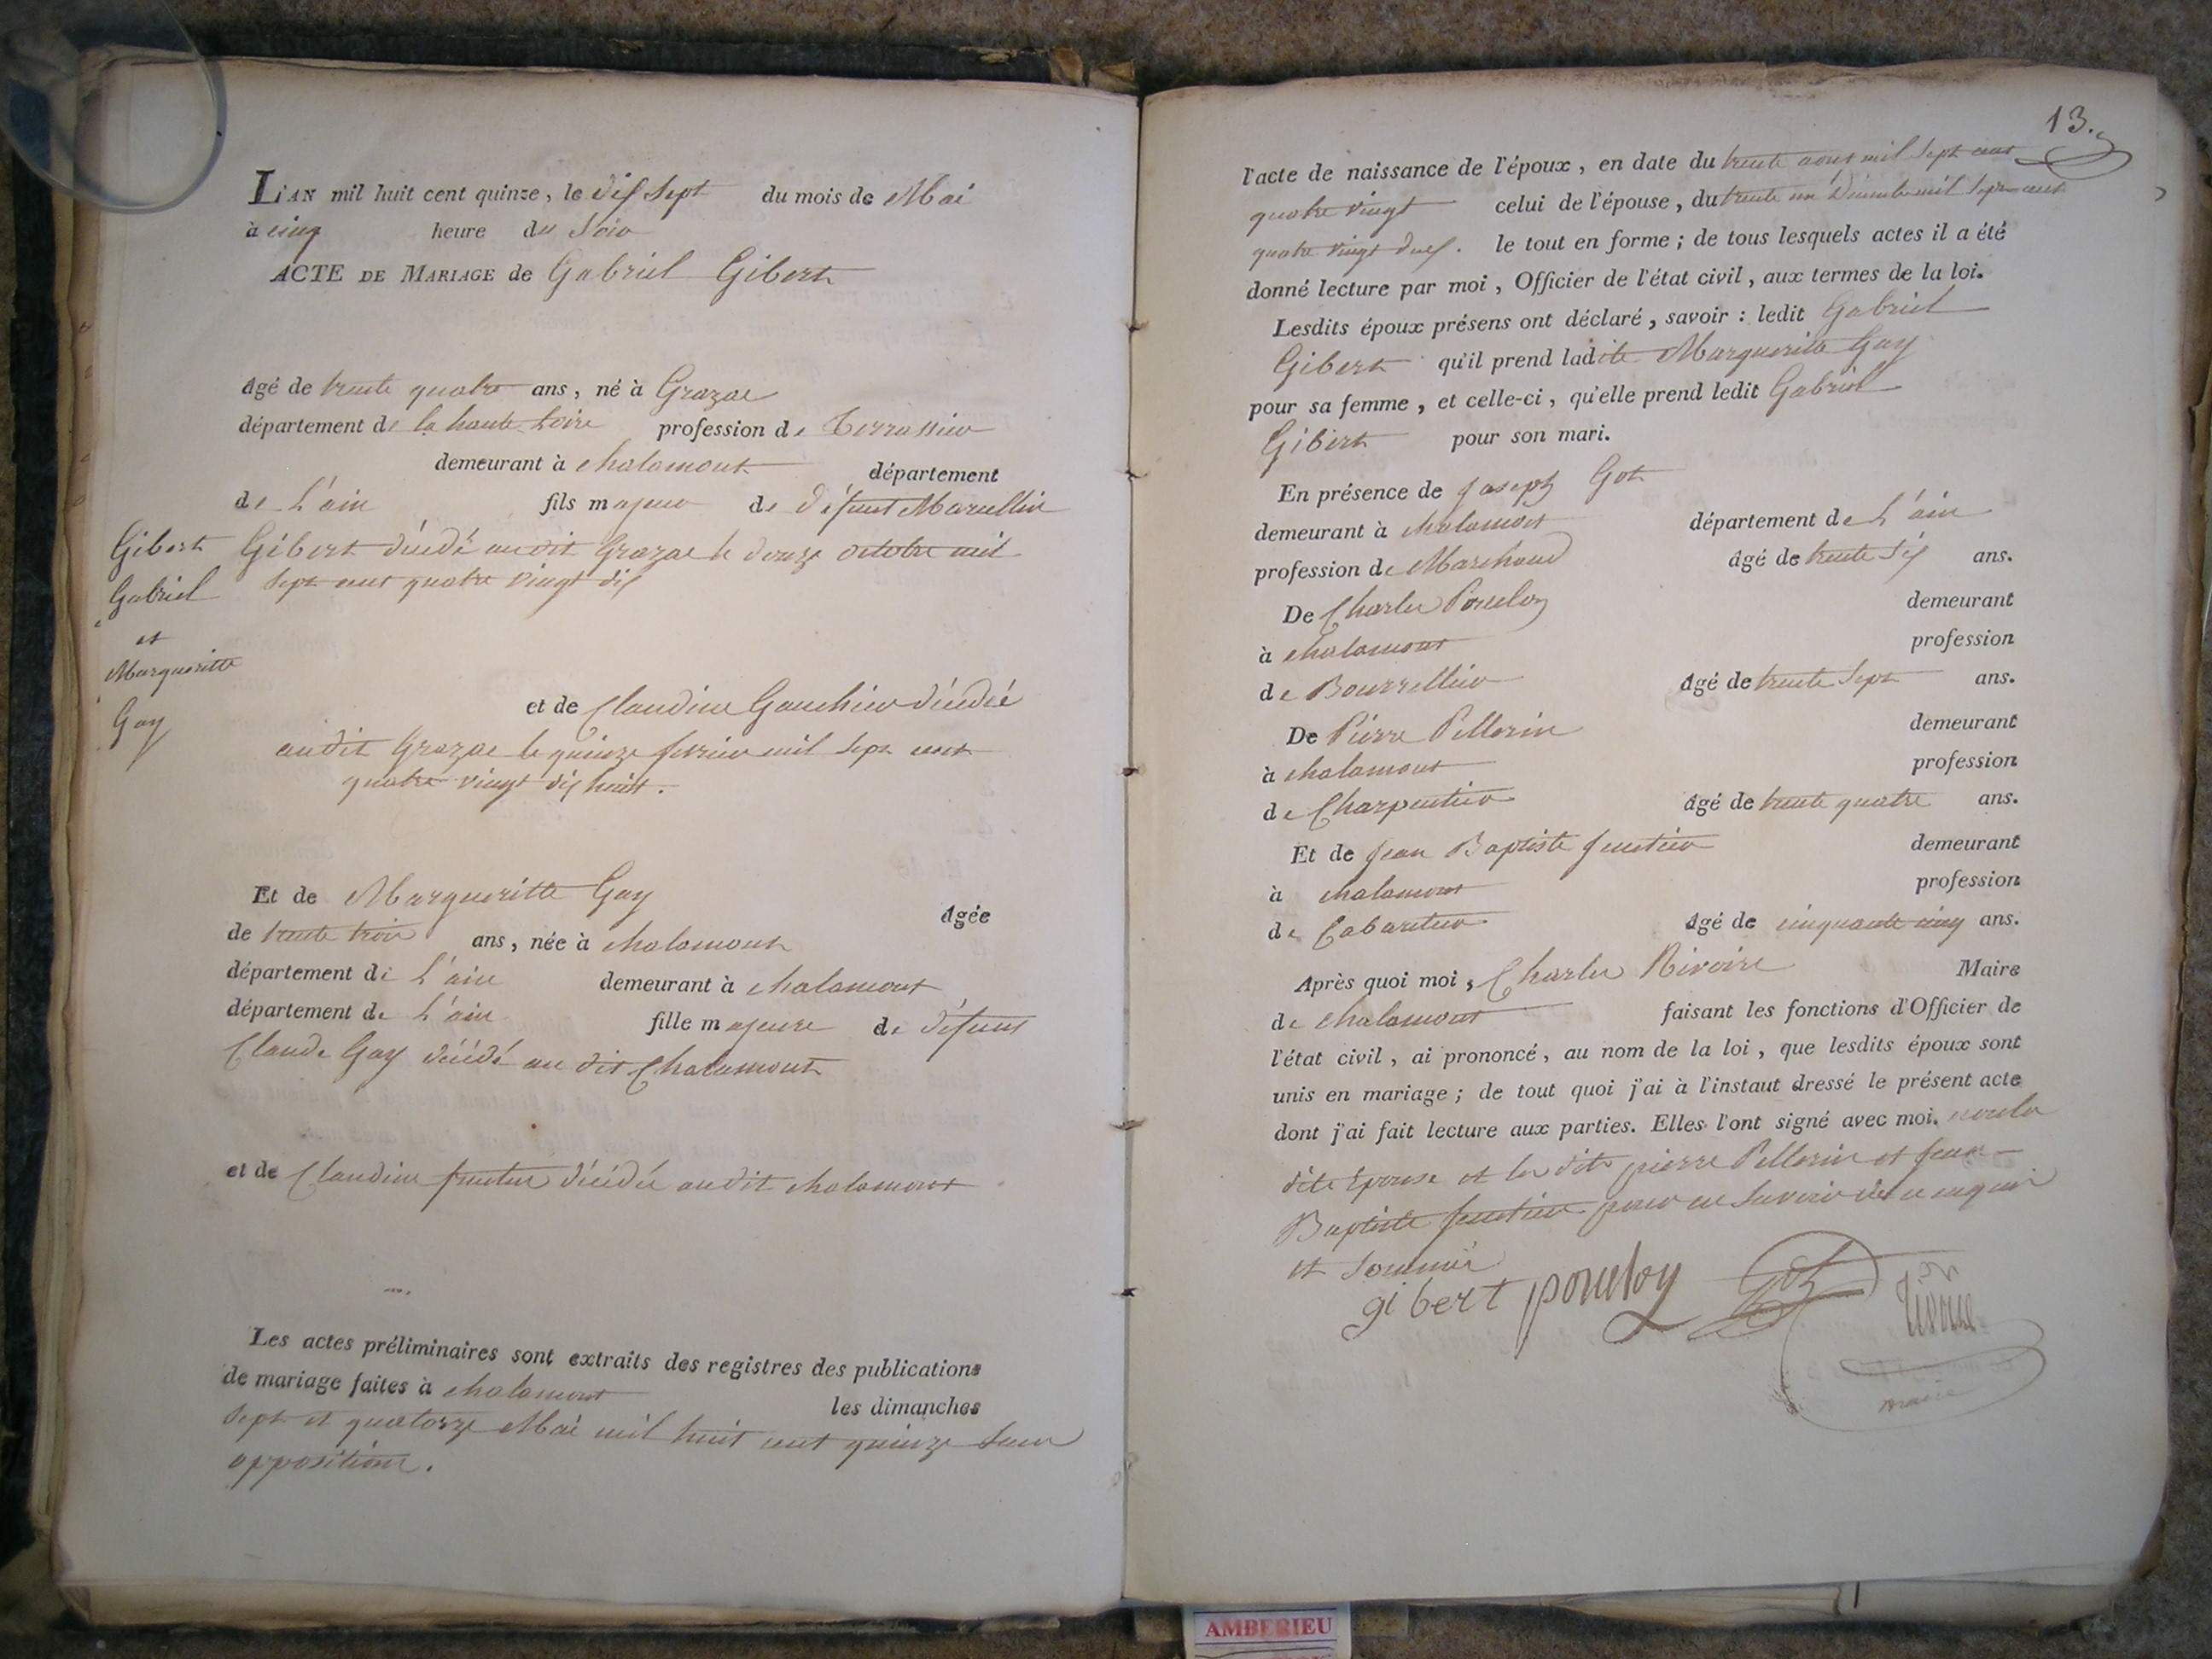 L'AN mil huit cent quinze, le dix sept du mois de Mai
à cinq heure du soir
ACTE DE MARIAGE de Gabriel Gibert
âgé de trente quatre ans, né à Grazac
département de la haute Loire profession de Terrassier
demeurant à chalamont département
de L'ain fils majeur de défunt Marcellin
Gibert décédé au dit Grazac le douze octobre mil
sept cent quatre vingt dix
Gibert
Gabriel
et
Margueritte
Gay
et de Claudine Gauchier décédée
audit Grazac le quinze ferrier mil sept cent
quatre vingt dix huit.
Et de Margueritte Gay agée
de trente trois ans, née à chalamont
département de L'ain demeurant à chalamont
département de L'ain fille majeure de défunt
Claude Gay décédé au dit Chalamont
et de Claudine décédée audit chalamont
Les actes préliminaires sont extraits des registres des publications
de mariage faites à chalamont les dimanches
sept et quatorze Mai mil huit cent quinze sans
opposition.
13.
l'acte de naissance de l'époux, en date du trente aout mil sept cent
quatre vingt celui de l'épouse, du trente un Décembre mil sept cent
quatre vingt deux. le tout en forme; de tous lesquels actes il a été
donné lecture par moi, Officier de l'état civil, aux termes de la loi.
Lesdits époux présens ont déclaré, savoir: ledit Gabriel
Gibert qu'il prend ladite Margueritte Gay
pour sa femme, et celle-ci, qu'elle prend ledit Gabriel
Gibert pour son mari.
En présence de Joseph Got
demeurant à chalamont département de L'ain
profession de Marchand âgé de trente six ans.
De Charles Pouloy demeurant
à chalamont profession
de Bourrellier âgé de trente sept ans.
De Pierre Pellorin demeurant
à chalamont profession
de Charpentier âgé de trente quatre ans.
Et de Jean Baptiste demeurant
à chalamont profession
de Cabaretier âgé de cinquante cinq ans.
Après quoi moi, Charles Rivoire Maire
de chalamont faisant les fonctions d'Officier de
l'état civil, ai prononcé, au nom de la loi, que lesdits époux sont
unis en mariage; de tout quoi j'ai à l'instaut dressé le présent acte
dont j'ai fait lecture aux parties. Elles l'ont signé avec moi. non la
dite Epouse et les dits pierre Pellorin et Jean
Baptiste pour ne savoir de ce enquis
et sommés
gibert pouloy Got Rivoire
maire
AMBERIEU